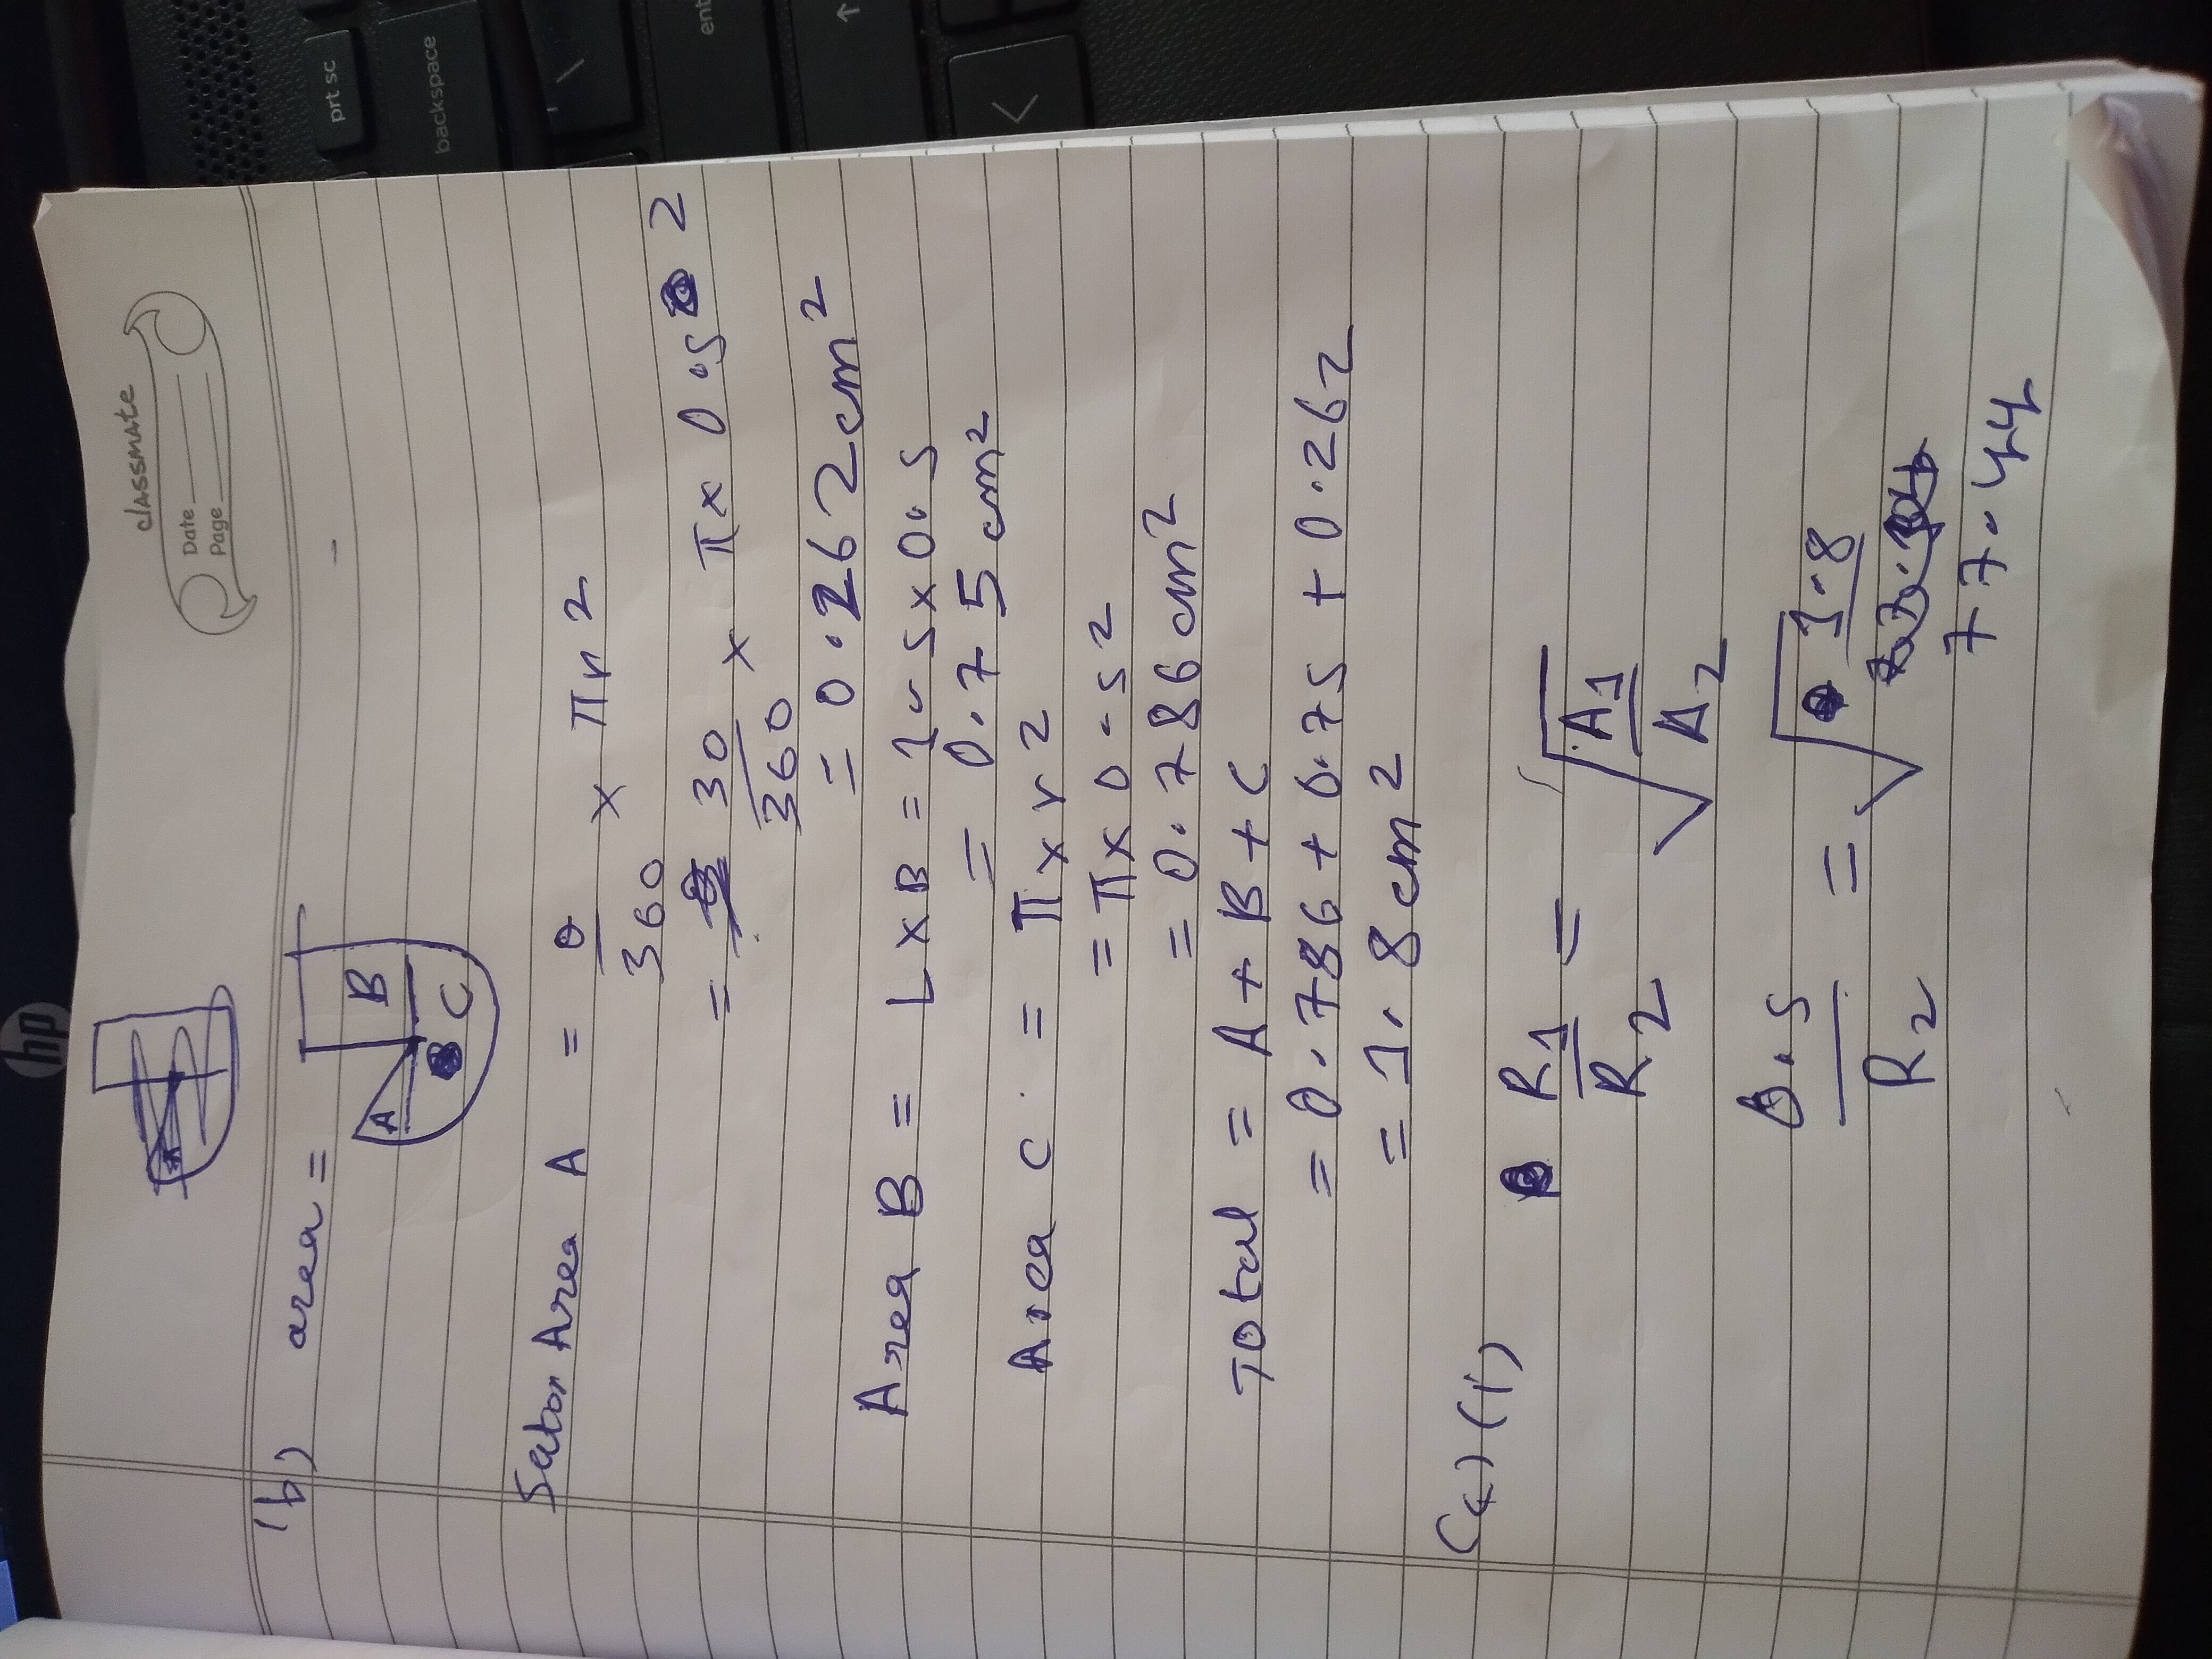 prt sc
backspace
ent
hp
classmate
Date
Page
1b) area =
A
B
C
Sector Area A = θ/360 × πr2
= 30/360 × π × 0.5 2
= 0.262 cm2
Area B = L × B = 1.5 × 0.5
= 0.75 cm2
Area C = π × r2
= π × 0.52
= 0.786 cm2
Total = A + B + C
= 0.786 + 0.75 + 0.262
= 1.8 cm2
(c)(i) R1/R2 = √A1/A2
0.5/R2 = √1.8/77.44